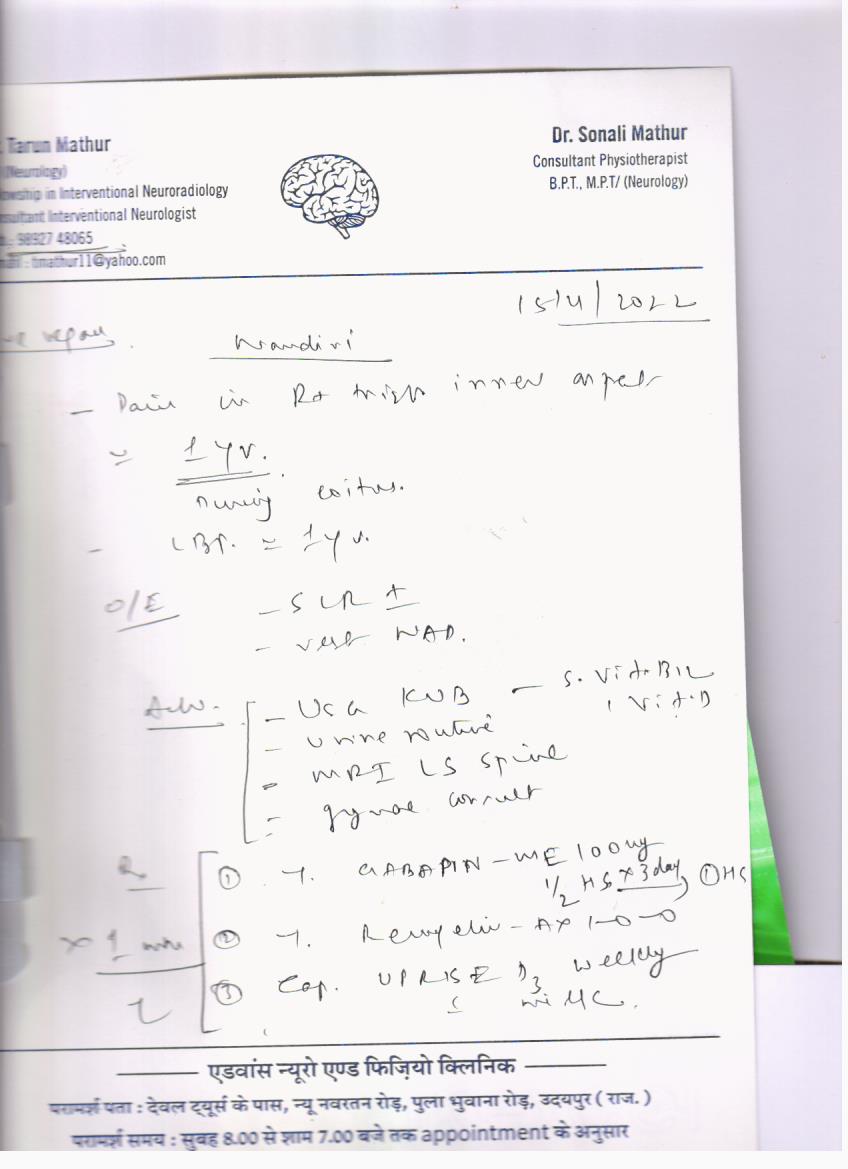 Tarun Mathur
(Neurology)
owship in Interventional Neuroradiology
nsultant Interventional Neurologist
98927 48065
mail : tmathur11@yahoo.com
Dr. Sonali Mathur
Consultant Physiotherapist
B.P.T., M.P.T/ (Neurology)
2022
- Pain in Rt thigh inner aspect
1 yr.
during coitus.
- LBP. ≃ 1 yr.
O/E - SLR ±
- rest NAD.
Adv. - USG KUB - S. Vit. B12
Vit. D
- Urine routine
- MRI LS Spine
- gynae consult
① T. GABAPIN-ME 100mg
1/2 HS x 3 day, ① HS
② T. 1-0-0
x 1
③ Cap. UPRISE D3 weekly
एडवांस न्यूरो एण्ड फिज़ियो क्लिनिक
परामर्श पता : देवल ट्यूर्स के पास, न्यू नवरतन रोड़, पुला भुवाना रोड़, उदयपुर ( राज. )
परामर्श समय : सुबह 8.00 से शाम 7.00 बजे तक appointment के अनुसार